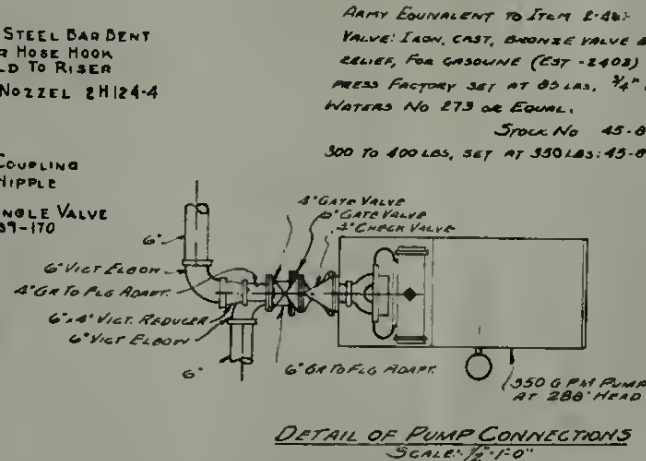 STEEL BAR BENT
HOSE HOOK
LD TO RISER
NOZZEL 2H124-4
COUPLING
NIPPLE
NGLE VALVE
39-170
ARMY EQUNALENT TO ITEM
VALVE: IRON, CAST, BRONZE VALVE
RELIEF, FOR GASOLINE (EST -2403)
PRESS FACTORY SET AT 85 LBS, 3/4"
WATERS NO 273 OR EQUAL.
STOCK NO 45-8
300 TO 400 LBS, SET AT 350 LBS: 45-8
4" GATE VALVE
6" GATE VALVE
4" CHECK VALVE
6"
6" VICT ELBOW
4" GR TO FLG ADAPT.
6"x4" VICT. REDUCER
6" VICT ELBOW
6"
6" GR TO FLG ADAPT.
350 G PM PUMP
AT 288' HEAD
DETAIL OF PUMP CONNECTIONS
SCALE: 1/2"=1'-0"